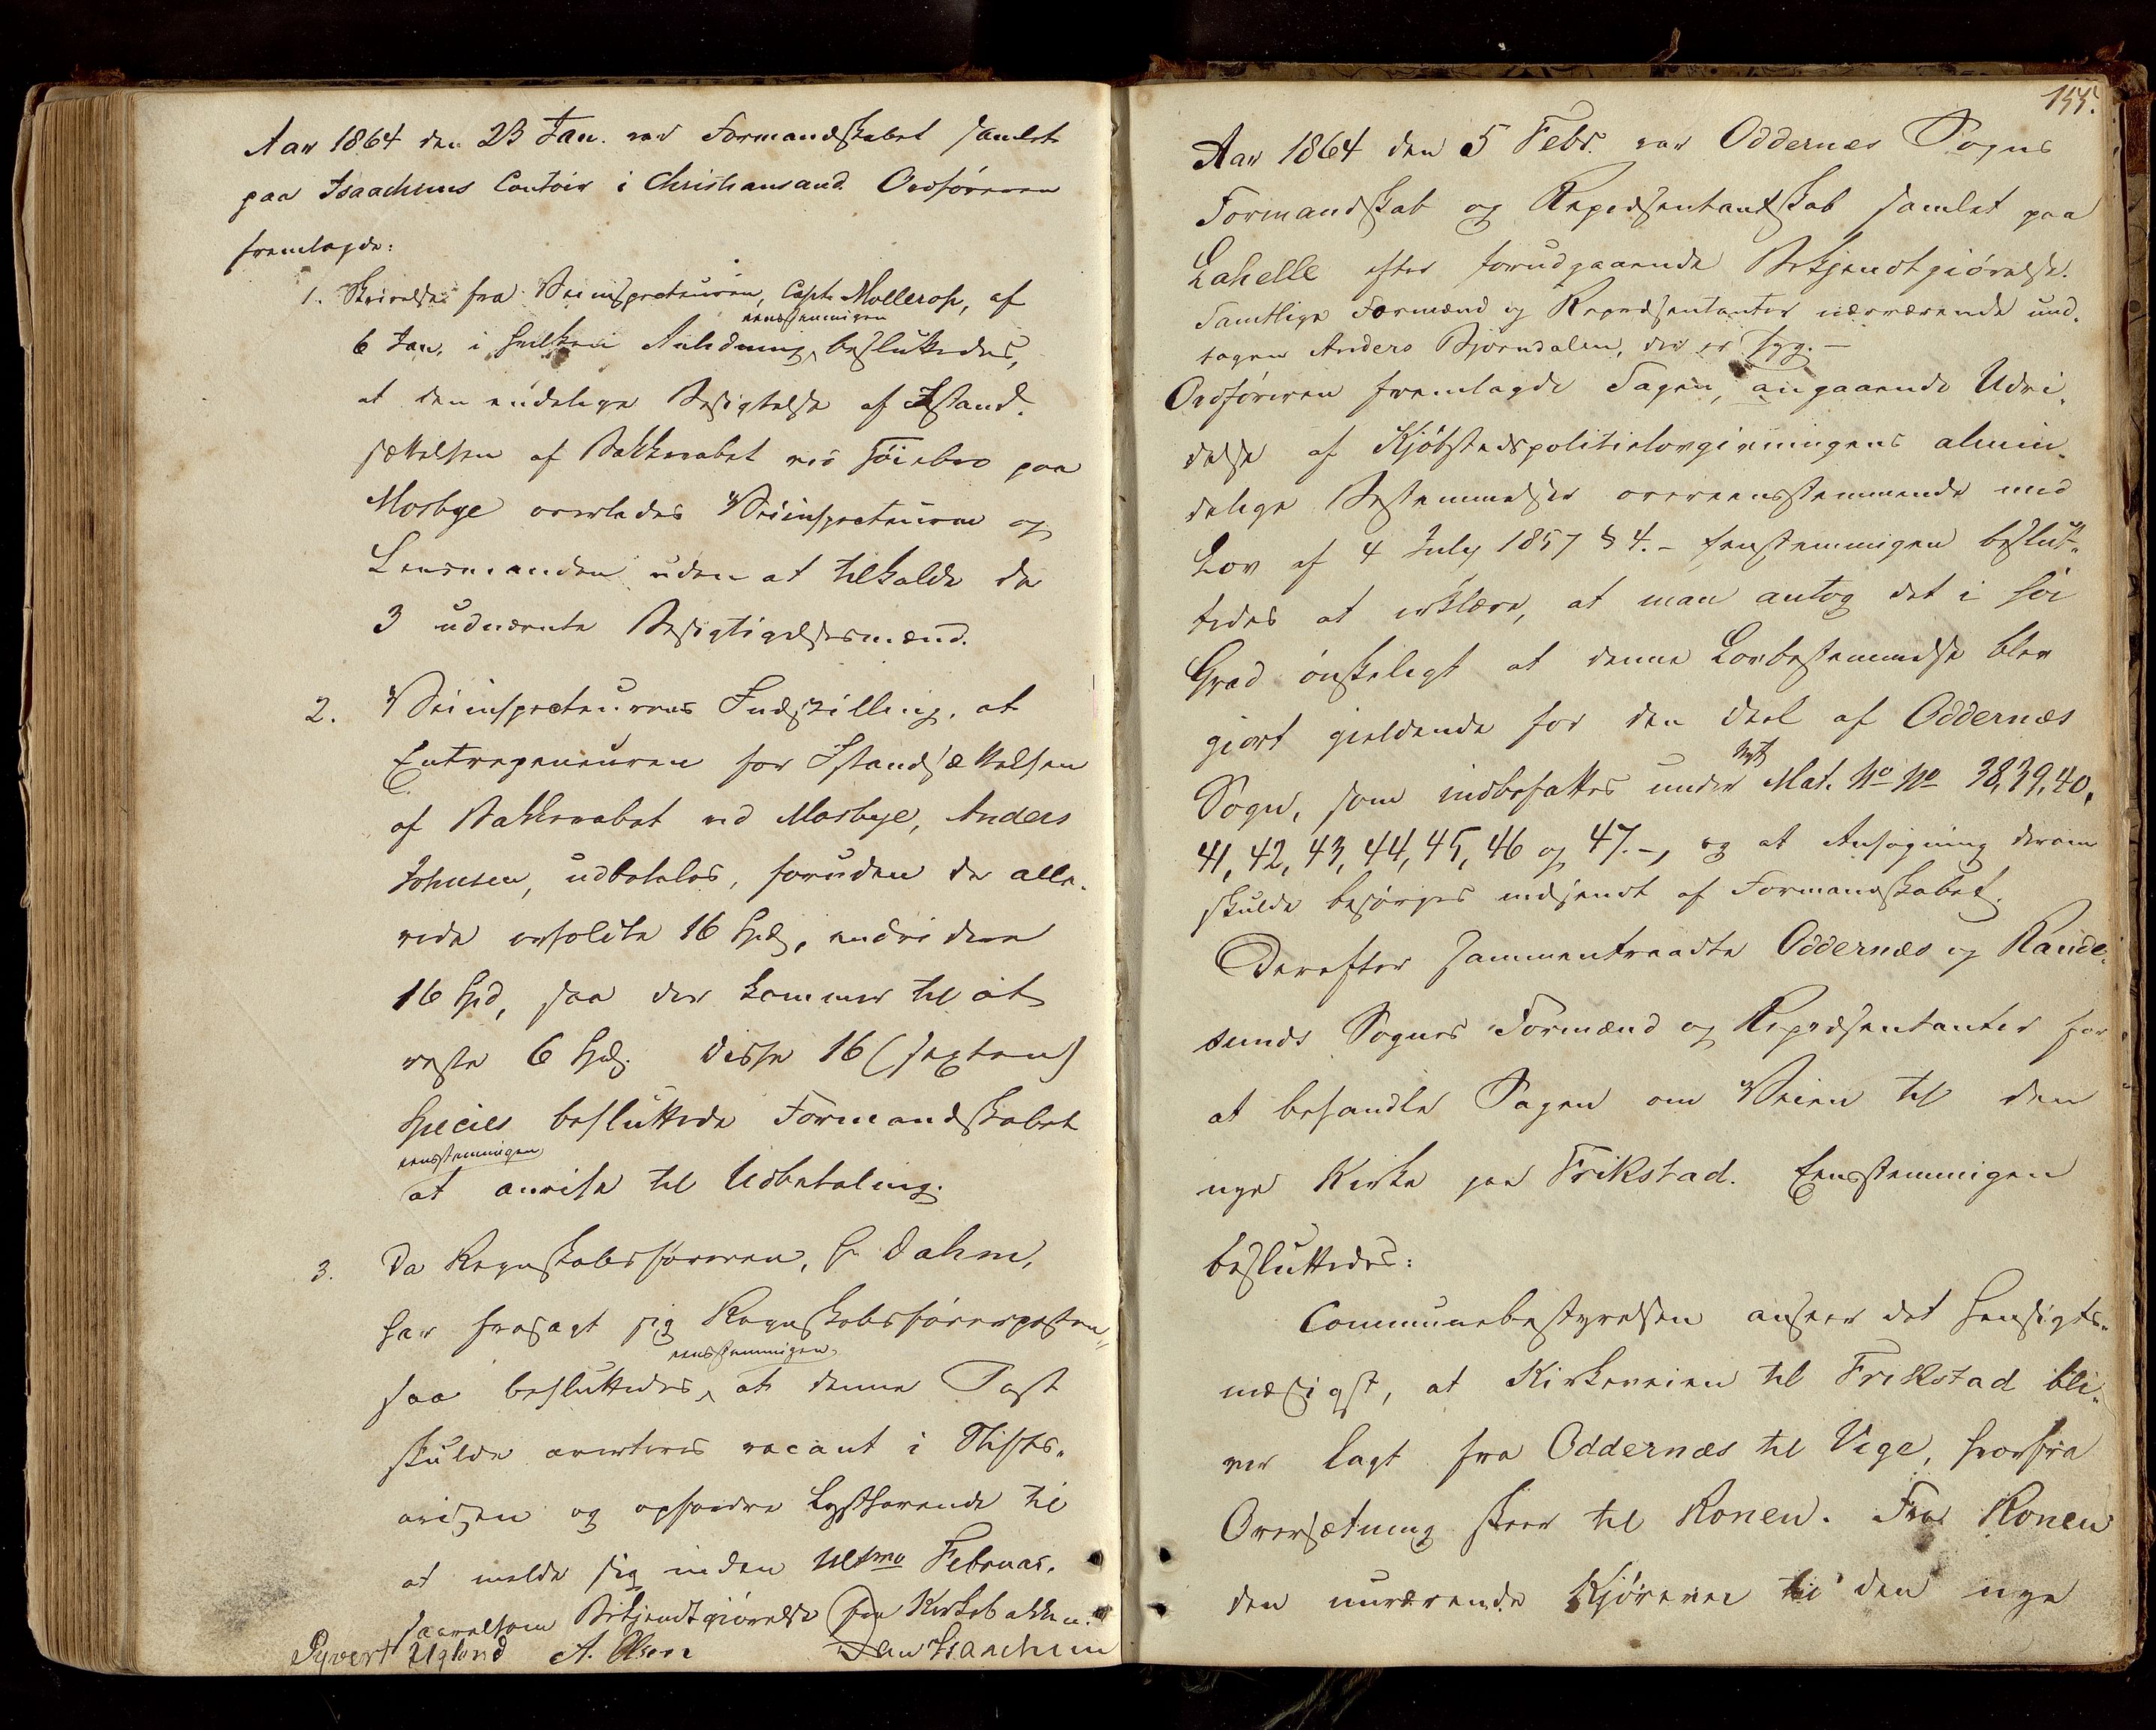 Aar 1864 den 23 Jan. var Formandskabet samlet
paa Isaachsens Contoir i Christiansand. Ordføreren
fremlagde:
1. Skrivelse fra Veiinspecteuren, Capt. Mollerop, af
eensstemmigen
6 Jan, i hvilken Anledning besluttedes,
at den endelige Besigtelse af Istand-
sættelsen af Bakkerabet ved Høiebro paa
Mosbye overlades Veiinspecteuren og
Lensmanden uden at tilkalde de
3 udnævnte Besigtigelsesmænd.
2. Veiinspecteurens Indstilling, at
Entrepeneuren for Istandsættelsen
af Bakkerabet ved Mosbye, Anders
Johnsen, udbetales, foruden de alle-
rede erholdte 16 Spd, endvidere
16 Spd, saa der kommer til at
reste 6 Spd. Disse 16 (sexten)
Species besluttede Formandskabet
eensstemmigen
at anvise til Udbetaling.
3. Da Regnskabsføreren, Hr Dahm,
har frasagt sig Regnskabsførerposten,
eensstemmigen
saa besluttedes, at denne Post
skulde averteres vacant i Stifts-
avisen og opfordre Lysthavende til
at melde sig inden Ultmo Februar,
saavelsom Bekjendtgiørelse fra Kirkebakken.
Syvert Uglund A. Olsen Dan Isaachsen
155.
Aar 1864 den 5 Febr. var Oddernæs Sogns
Formandskab og Repræsentantskab samlet paa
Lahelle efter forudgaaende Bekjendtgiørelse.
Samtlige Formænd og Repræsentanter nærværende und-
tagen Anders Bjørndalen, der er syg. —
Ordføreren fremlagde Sagen, angaaende Udvi-
delse af Kjøbstadspolitielovgivningens almin-
delige Bestemmelser overeensstemmende med
Lov af 4 July 1857 § 4. - Eenstemmigen beslut-
tedes at erklære, at man antog det i høi
Grad ønskeligt at denne Lovbestemmelse blev
giort gieldende for den Deel af Oddernæs
nyt
Sogn, som indbefattes under Mat. No No 38, 39, 40,
41, 42, 43, 44, 45, 46 og 47. -, og at Ansøgning derom
skulde besørges indsendt af Formandskabet.
Derefter sammentraadte Oddernæs og Rande-
sunds Sognes Formænd og Repræsentanter for
at behandle Sagen om Veien til den
nye Kirke paa Frikstad. Eensstemmigen
besluttedes:
Communebestyrelsen anseer det hensigts-
mæsigst, at Kirkeveien til Frikstad bli-
ver lagt fra Oddernæs til Vige, hvorfra
Oversætning skeer til Ronen. Fra Ronen
den nuværende Kjørevei til den nye